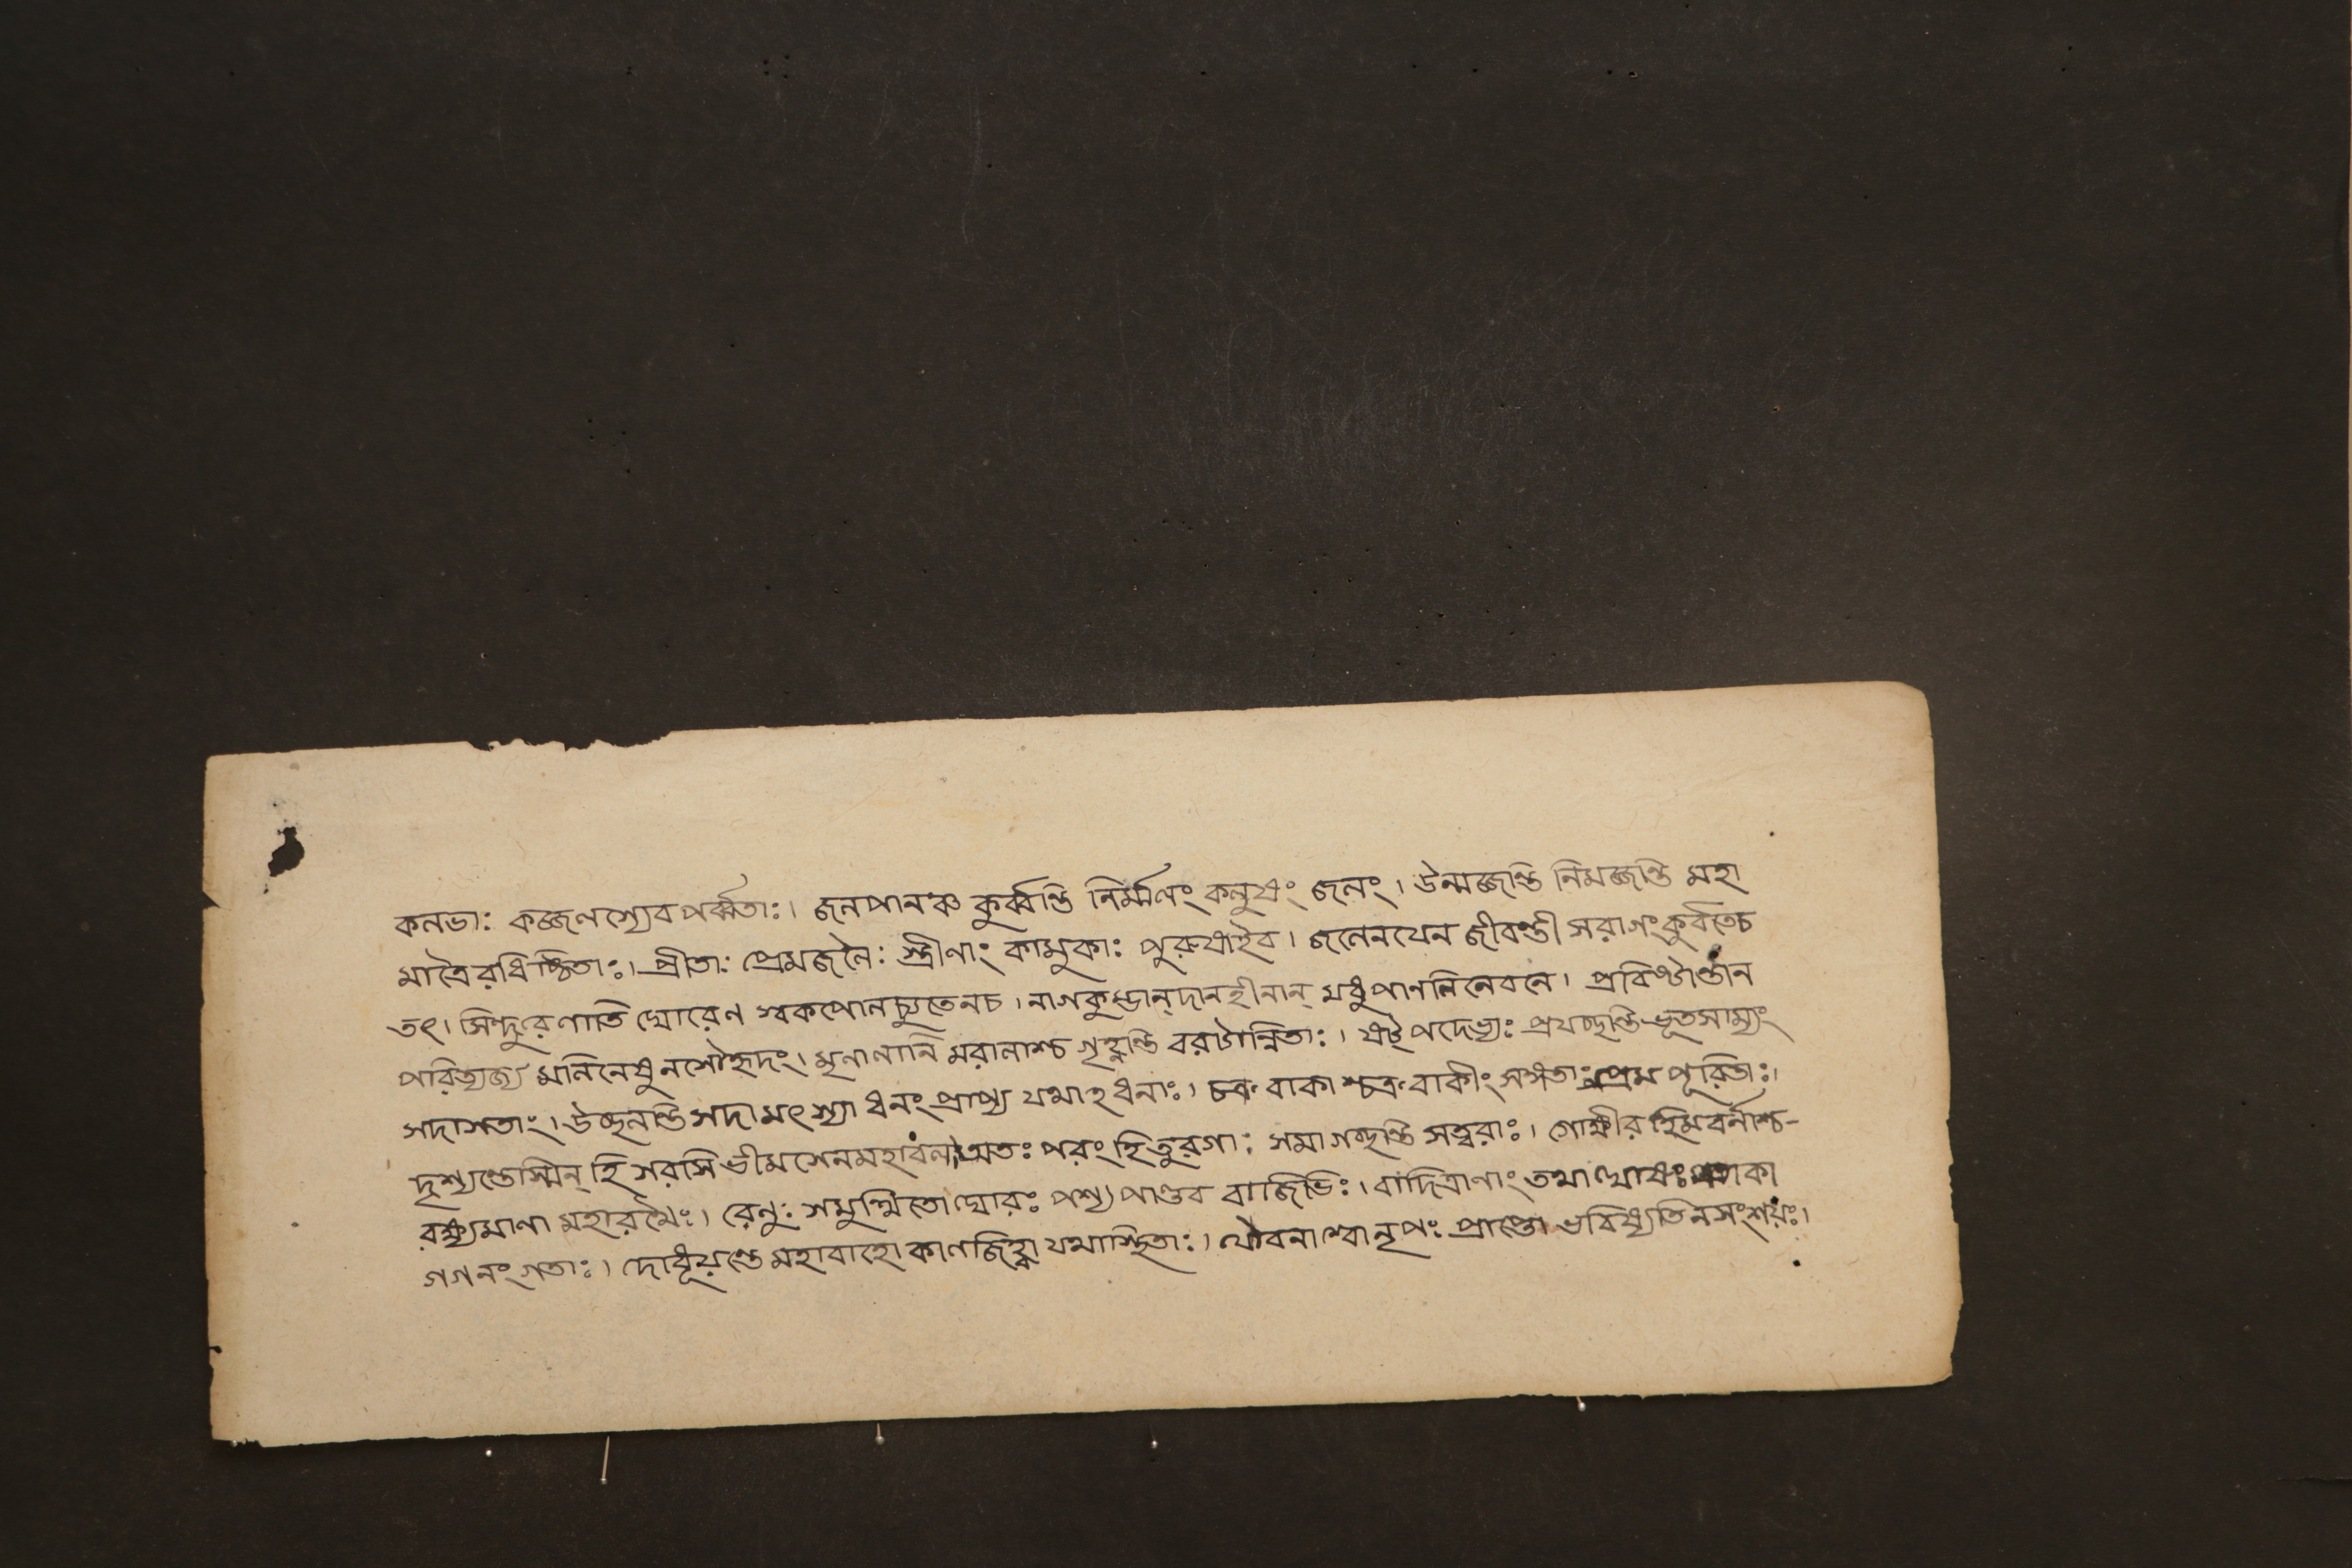 কলভাঃ কজ্জলস্যেব পর্ব্বতাঃ। জলপানঞ্চ কুর্ব্বন্তি নির্ম্মলং কলুষং জলং। উন্মজ্জন্তি নিমজ্জন্তি মহা
মাত্রৈরধিষ্ঠিতাঃ। প্রীতাঃ প্রেমজলৈঃ স্ত্রীণাং কামুকাঃ পুরুষাইব। জলেনযেন জীবন্তী সরাগং কুর্বতেচ
তৎ। সিন্দুরেণাতি ঘোরেণ স্বকপোলচ্যুতেনচ। নাগকুম্ভান্ দানহীনান্ মধুপাণলিনেবনে। প্রবিষ্টাস্তান
পরিত্যজ্য মলিনেষু নসৌহৃদং। মৃণালানি মরালাশ্চ গৃহ্ণন্তি বরটান্বিতাঃ। ষট্ পদেভ্যঃ প্রযচ্ছন্তি ভূতসাম্যং
সদাসতাং। উচ্ছলন্তি সদা মৎস্যা ধনং প্রাপ্য যথাহধনাঃ। চক্রবাকাশ্চক্রবাকীং সঙ্গতাঃ প্রেম পূরিতাঃ।
দৃশ্যন্তেস্মিন্ হি সরসি ভীমসেনমহাবল। অতঃ পরং হি তুরগাঃ সমাগচ্ছন্তি সত্বরাঃ। গোক্ষীর হিমবর্নাশ্চ-
রক্ষ্যমাণা মহারথৈঃ। রেনুঃ সমুত্থিতো ঘোরঃ পশ্য পাণ্ডব বাজিভিঃ। বাদিত্রাণাং তথা ঘোষঃ পতাকা
গগনং গতাঃ। দোধূয়ন্তে মহাবাহো কালজিহ্বা যথাস্থিতাঃ। যৌবনাশ্বোনৃপঃ প্রাপ্তো ভবিষ্যতিনসংশয়ঃ।